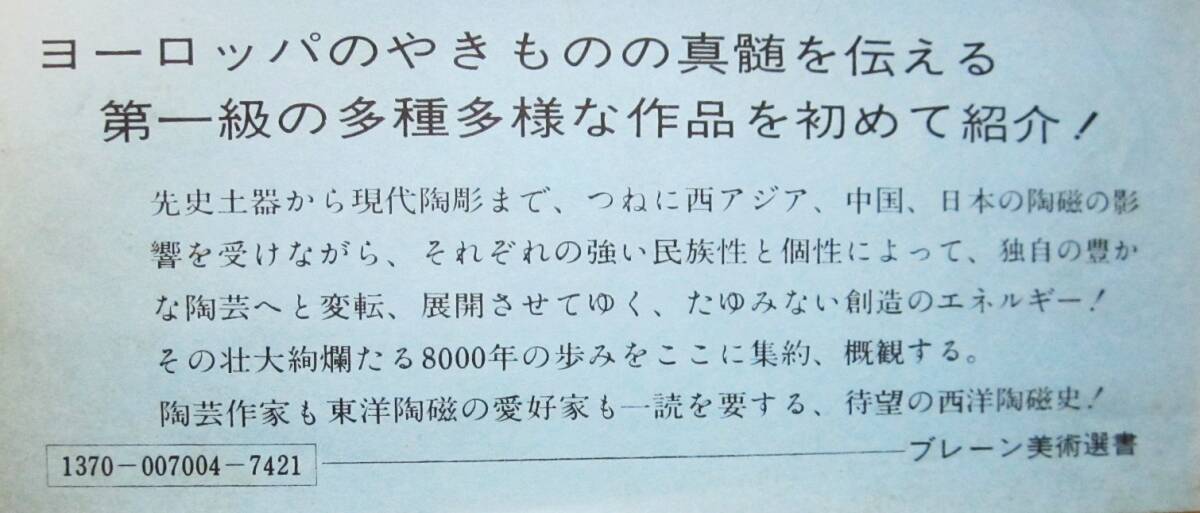 ヨーロッパのやきものの真髄を伝える
第一級の多種多様な作品を初めて紹介！
先史土器から現代陶彫まで、つねに西アジア、中国、日本の陶磁の影
響を受けながら、それぞれの強い民族性と個性によって、独自の豊か
な陶芸へと変転、展開させてゆく、たゆみない創造のエネルギー！
その壮大絢爛たる8000年の歩みをここに集約、概観する。
陶芸作家も東洋陶磁の愛好家も一読を要する、待望の西洋陶磁史！
1370-007004-7421
ブレーン美術選書